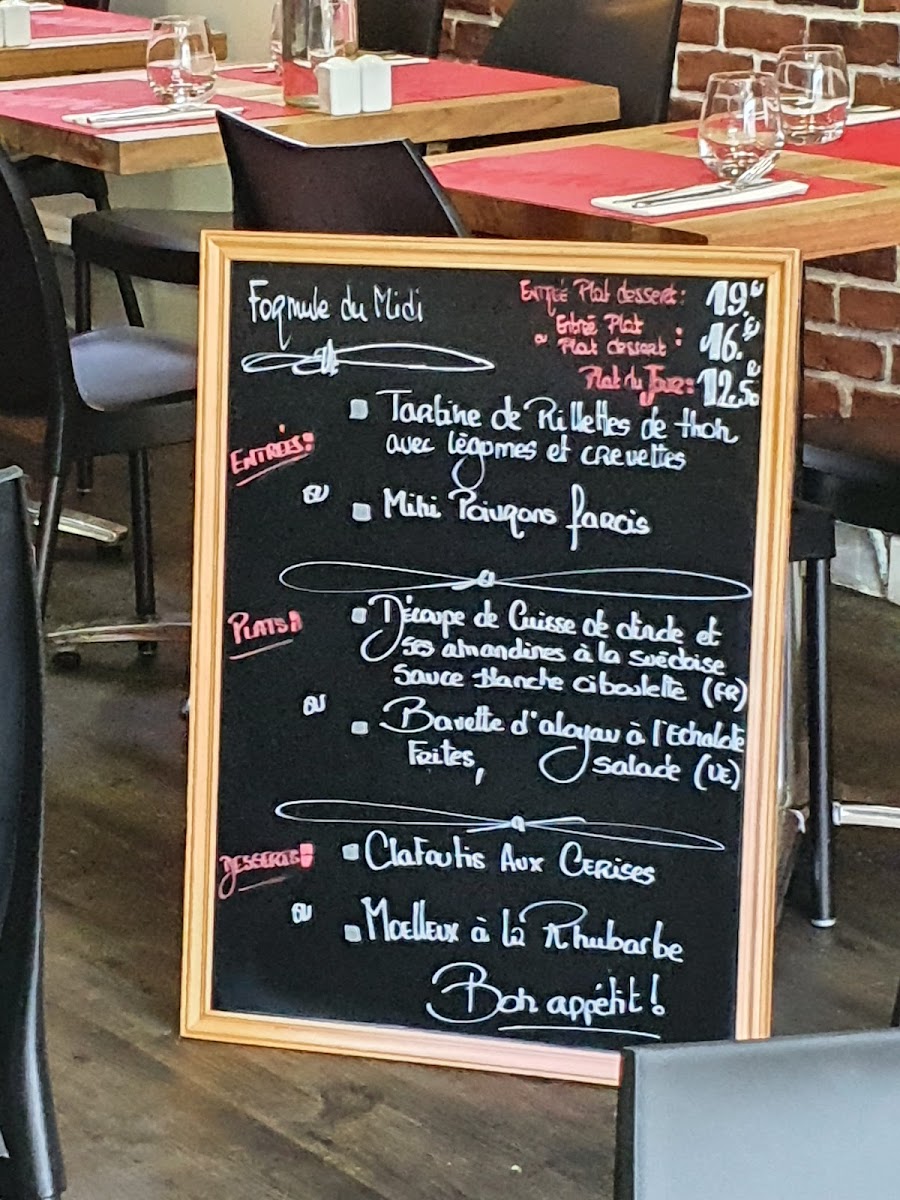 Formule du Midi
Entrée Plat dessert: 19.€
Entrée Plat
ou Plat dessert : 16.€
Plat du Jour: 12,5€
ENTRÉES:
Tartine de Rillettes de thon
avec légumes et crevettes
ou
Mini Poivrons farcis
PLATS:
Découpe de Cuisse de dinde et
ses amandines à la suédoise
sauce blanche ciboulette (FR)
ou
Bavette d'aloyau à l'Echalote
Frites, salade (UE)
DESSERTS:
Clafoutis Aux Cerises
ou
Moelleux à la Rhubarbe
Bon appétit!